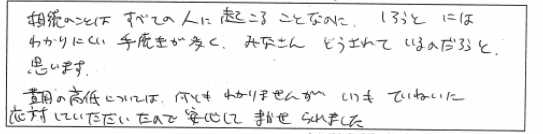 相続のことは すべての人に起こることなのに、しろうとには
わかりにくい手続きが多く、みなさん どうされているのだろうと、
思います。
費用の高低については、何ともわかりませんが いつも ていねいに
応対していただいたので 安心して まかせられました